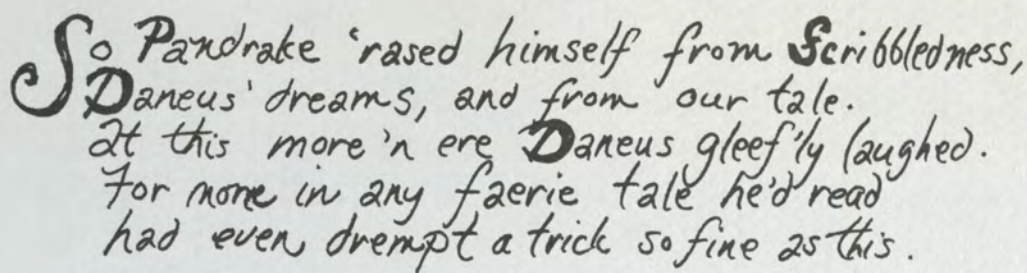 So Pandrake 'rased himself from Scribbledness,
Daneus' dreams, and from our tale.
At this more 'n ere Daneus gleef'ly laughed.
For none in any faerie tale he'd read
had even drempt a trick so fine as this.